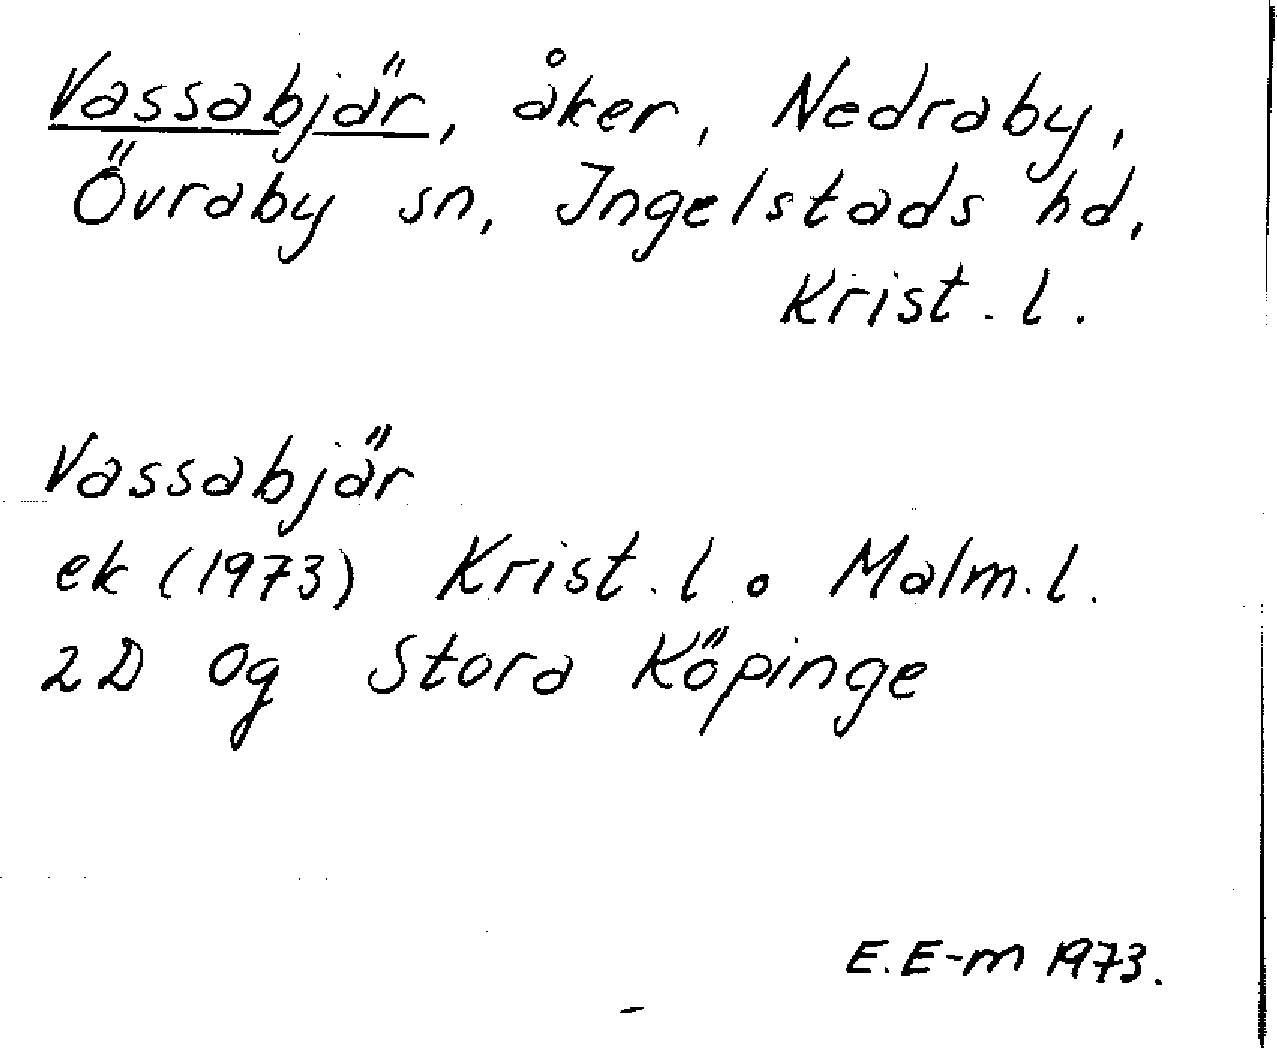 Vassabjär, åker, Nedraby,
Övraby sn, Ingelstads hd,
Krist. l.
Vassabjär
ek (1973) Krist. l o Malm. l.
2D 0g Stora Köpinge
E. E-m 1973.